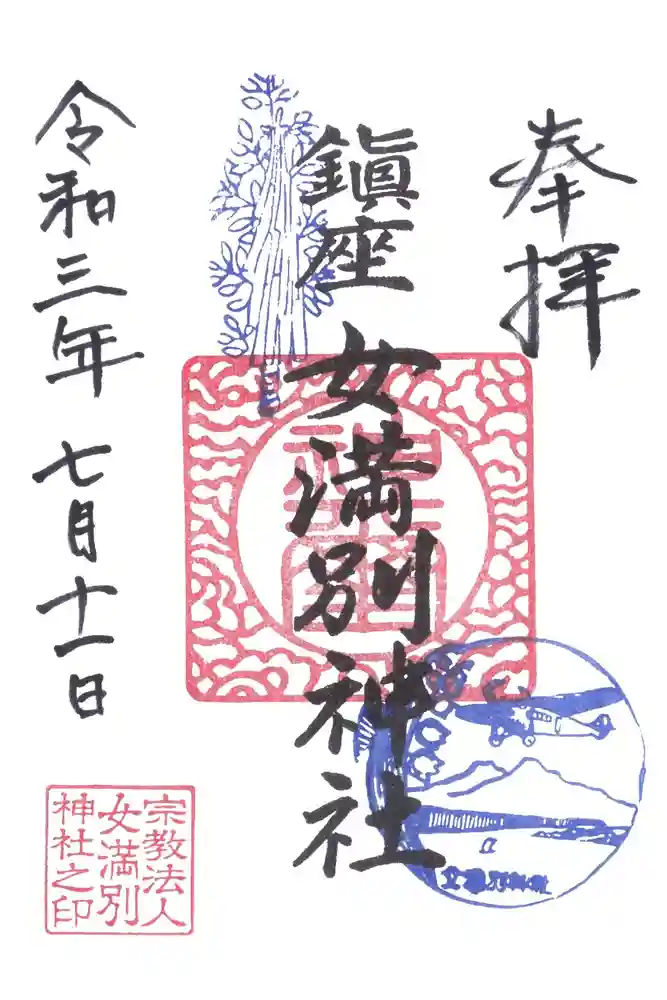 奉拝
鎭座
女満別神社
令和三年七月十一日
宗教法人
女満別
神社之印